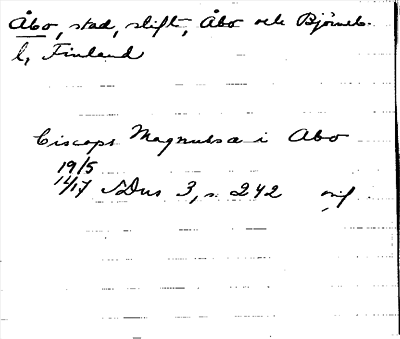 Åbo, stad, stift, Åbo och Bjørneb.
l, Finland
Biscops Magnus i Abo
19/5
1417 SDns 3, s. 242